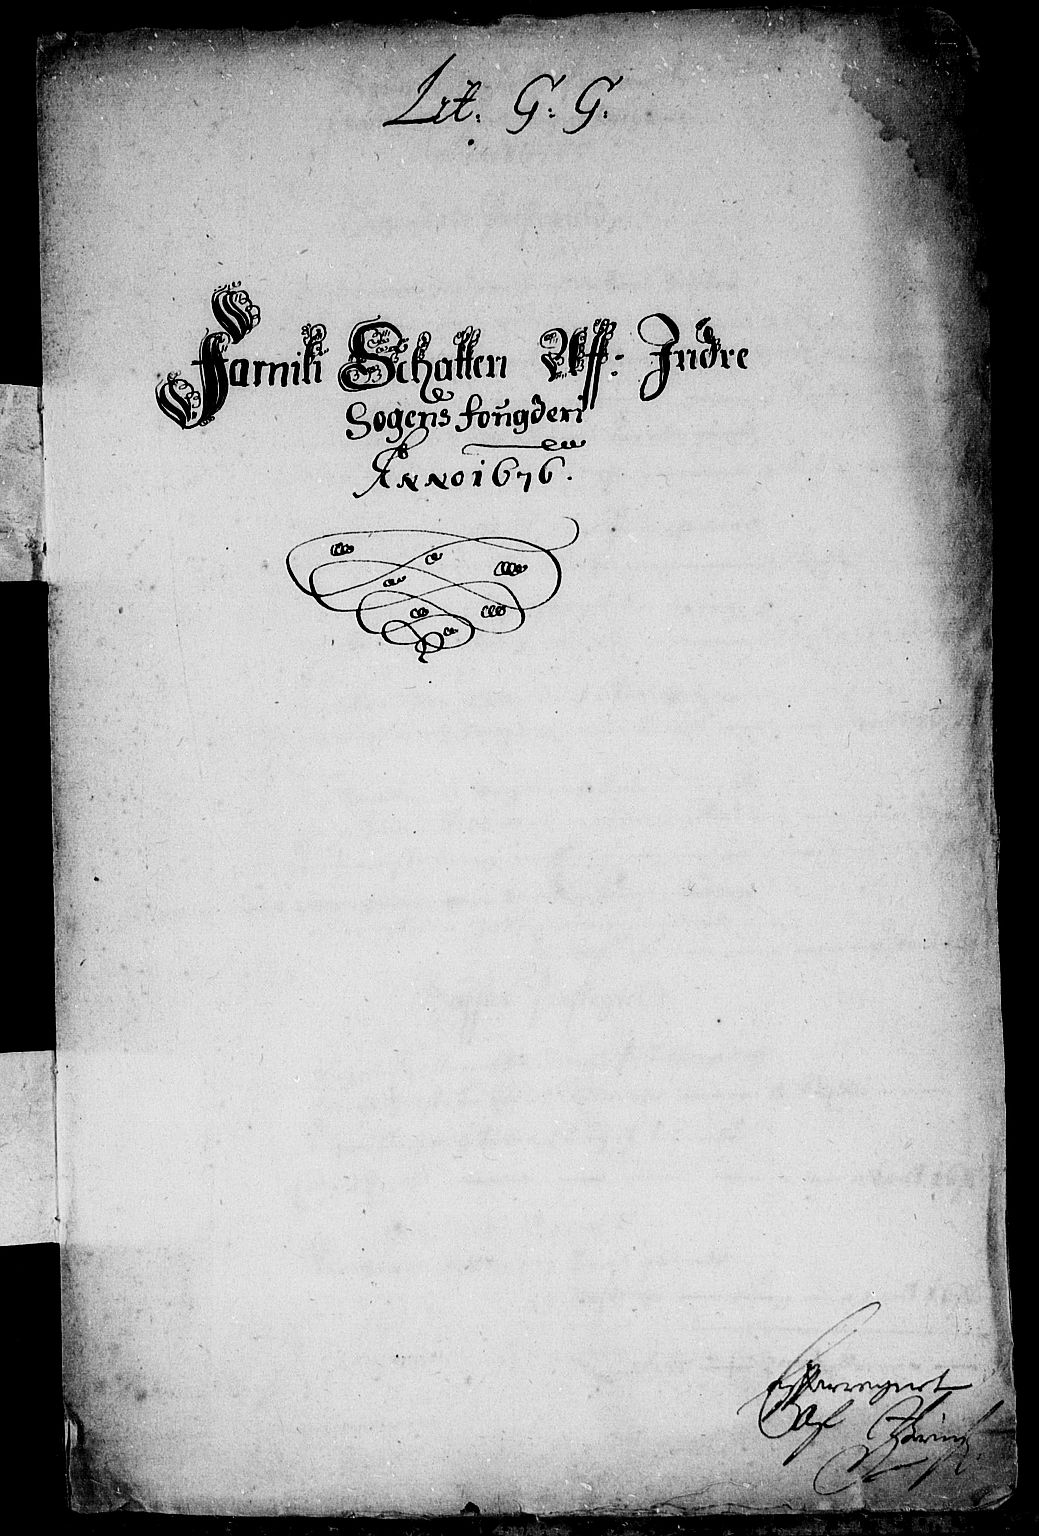 Lit. G: G:
Famili Schatten Aff: Indre
Sogens fougderi
Anno 1676.